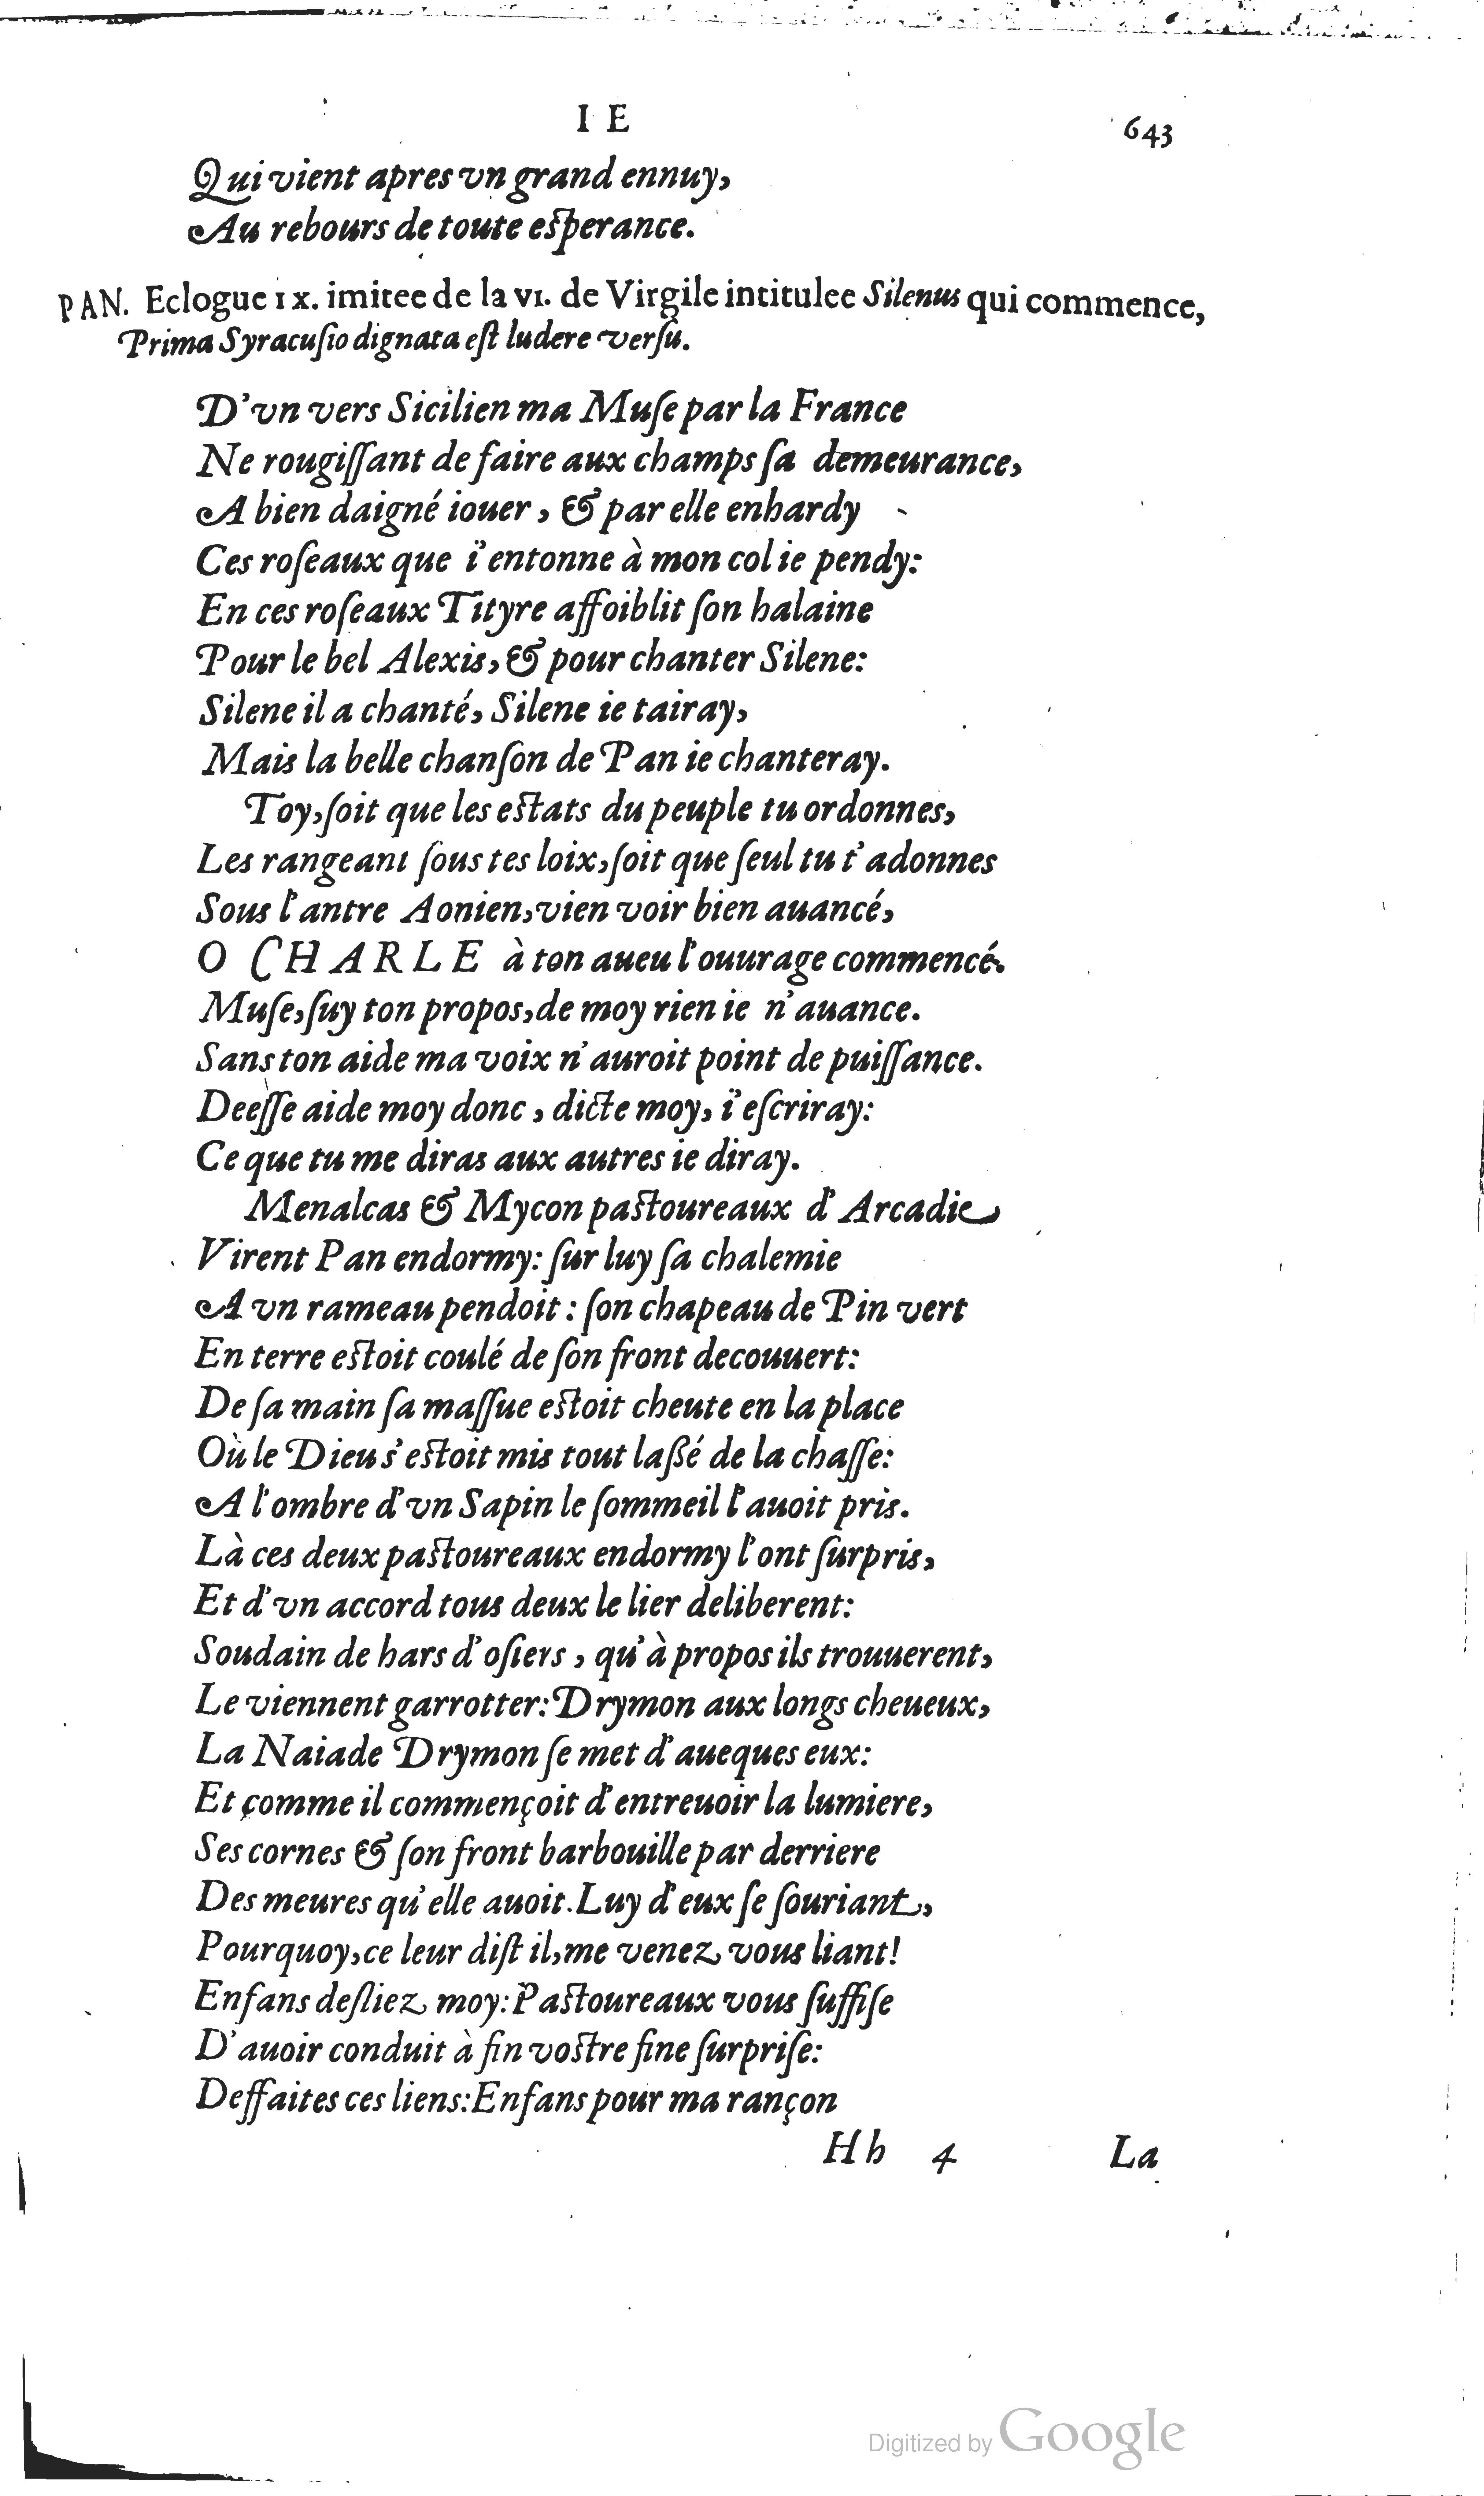 I E 643
Qui vient apres vn grand ennuy,
Au rebours de toute esperance.
PAN. Eclogue IX. imitee de la VI. de Virgile intitulee Silenus qui commence,
Prima Syracuſio dignata eſt ludere verſu.
D'vn vers Sicilien ma Muſe par la France
Ne rougiſſant de faire aux champs ſa demeurance,
A bien daigné iouer, & par elle enhardy
Ces roſeaux que i'entonne à mon col ie pendy:
En ces roſeaux Tityre affoiblit ſon halaine
Pour le bel Alexis, & pour chanter Silene:
Silene il a chanté, Silene ie tairay,
Mais la belle chanſon de Pan ie chanteray.
Toy, ſoit que les eſtats du peuple tu ordonnes,
Les rangeant ſous tes loix, ſoit que ſeul tu t'adonnes
Sous l'antre Aonien, vien voir bien auancé,
O CHARLE à ton aueu l'ouurage commencé.
Muſe, ſuy ton propos, de moy rien ie n'auance.
Sans ton aide ma voix n'auroit point de puiſſance.
Deeſſe aide moy donc, dicte moy, i'eſcriray:
Ce que tu me diras aux autres ie diray.
Menalcas & Mycon paſtoureaux d'Arcadie
Virent Pan endormy: ſur luy ſa chalemie
A vn rameau pendoit: ſon chapeau de Pin vert
En terre eſtoit coulé de ſon front decouuert:
De ſa main ſa maſſue eſtoit cheute en la place
Où le Dieu s'eſtoit mis tout laßé de la chaſſe:
A l'ombre d'vn Sapin le ſommeil l'auoit pris.
Là ces deux paſtoureaux endormy l'ont ſurpris,
Et d'vn accord tous deux le lier deliberent:
Soudain de hars d'oſiers, qu'à propos ils trouuerent,
Le viennent garrotter: Drymon aux longs cheueux,
La Naiade Drymon ſe met d'aueques eux:
Et comme il commençoit d'entreuoir la lumiere,
Ses cornes & ſon front barbouille par derriere
Des meures qu'elle auoit. Luy d'eux ſe ſouriant,
Pourquoy, ce leur diſt il, me venez vous liant!
Enfans deſliez moy: Paſtoureaux vous ſuffiſe
D'auoir conduit à fin voſtre fine ſurpriſe:
Deffaites ces liens: Enfans pour ma rançon
Hh 4 La
Digitized by Google